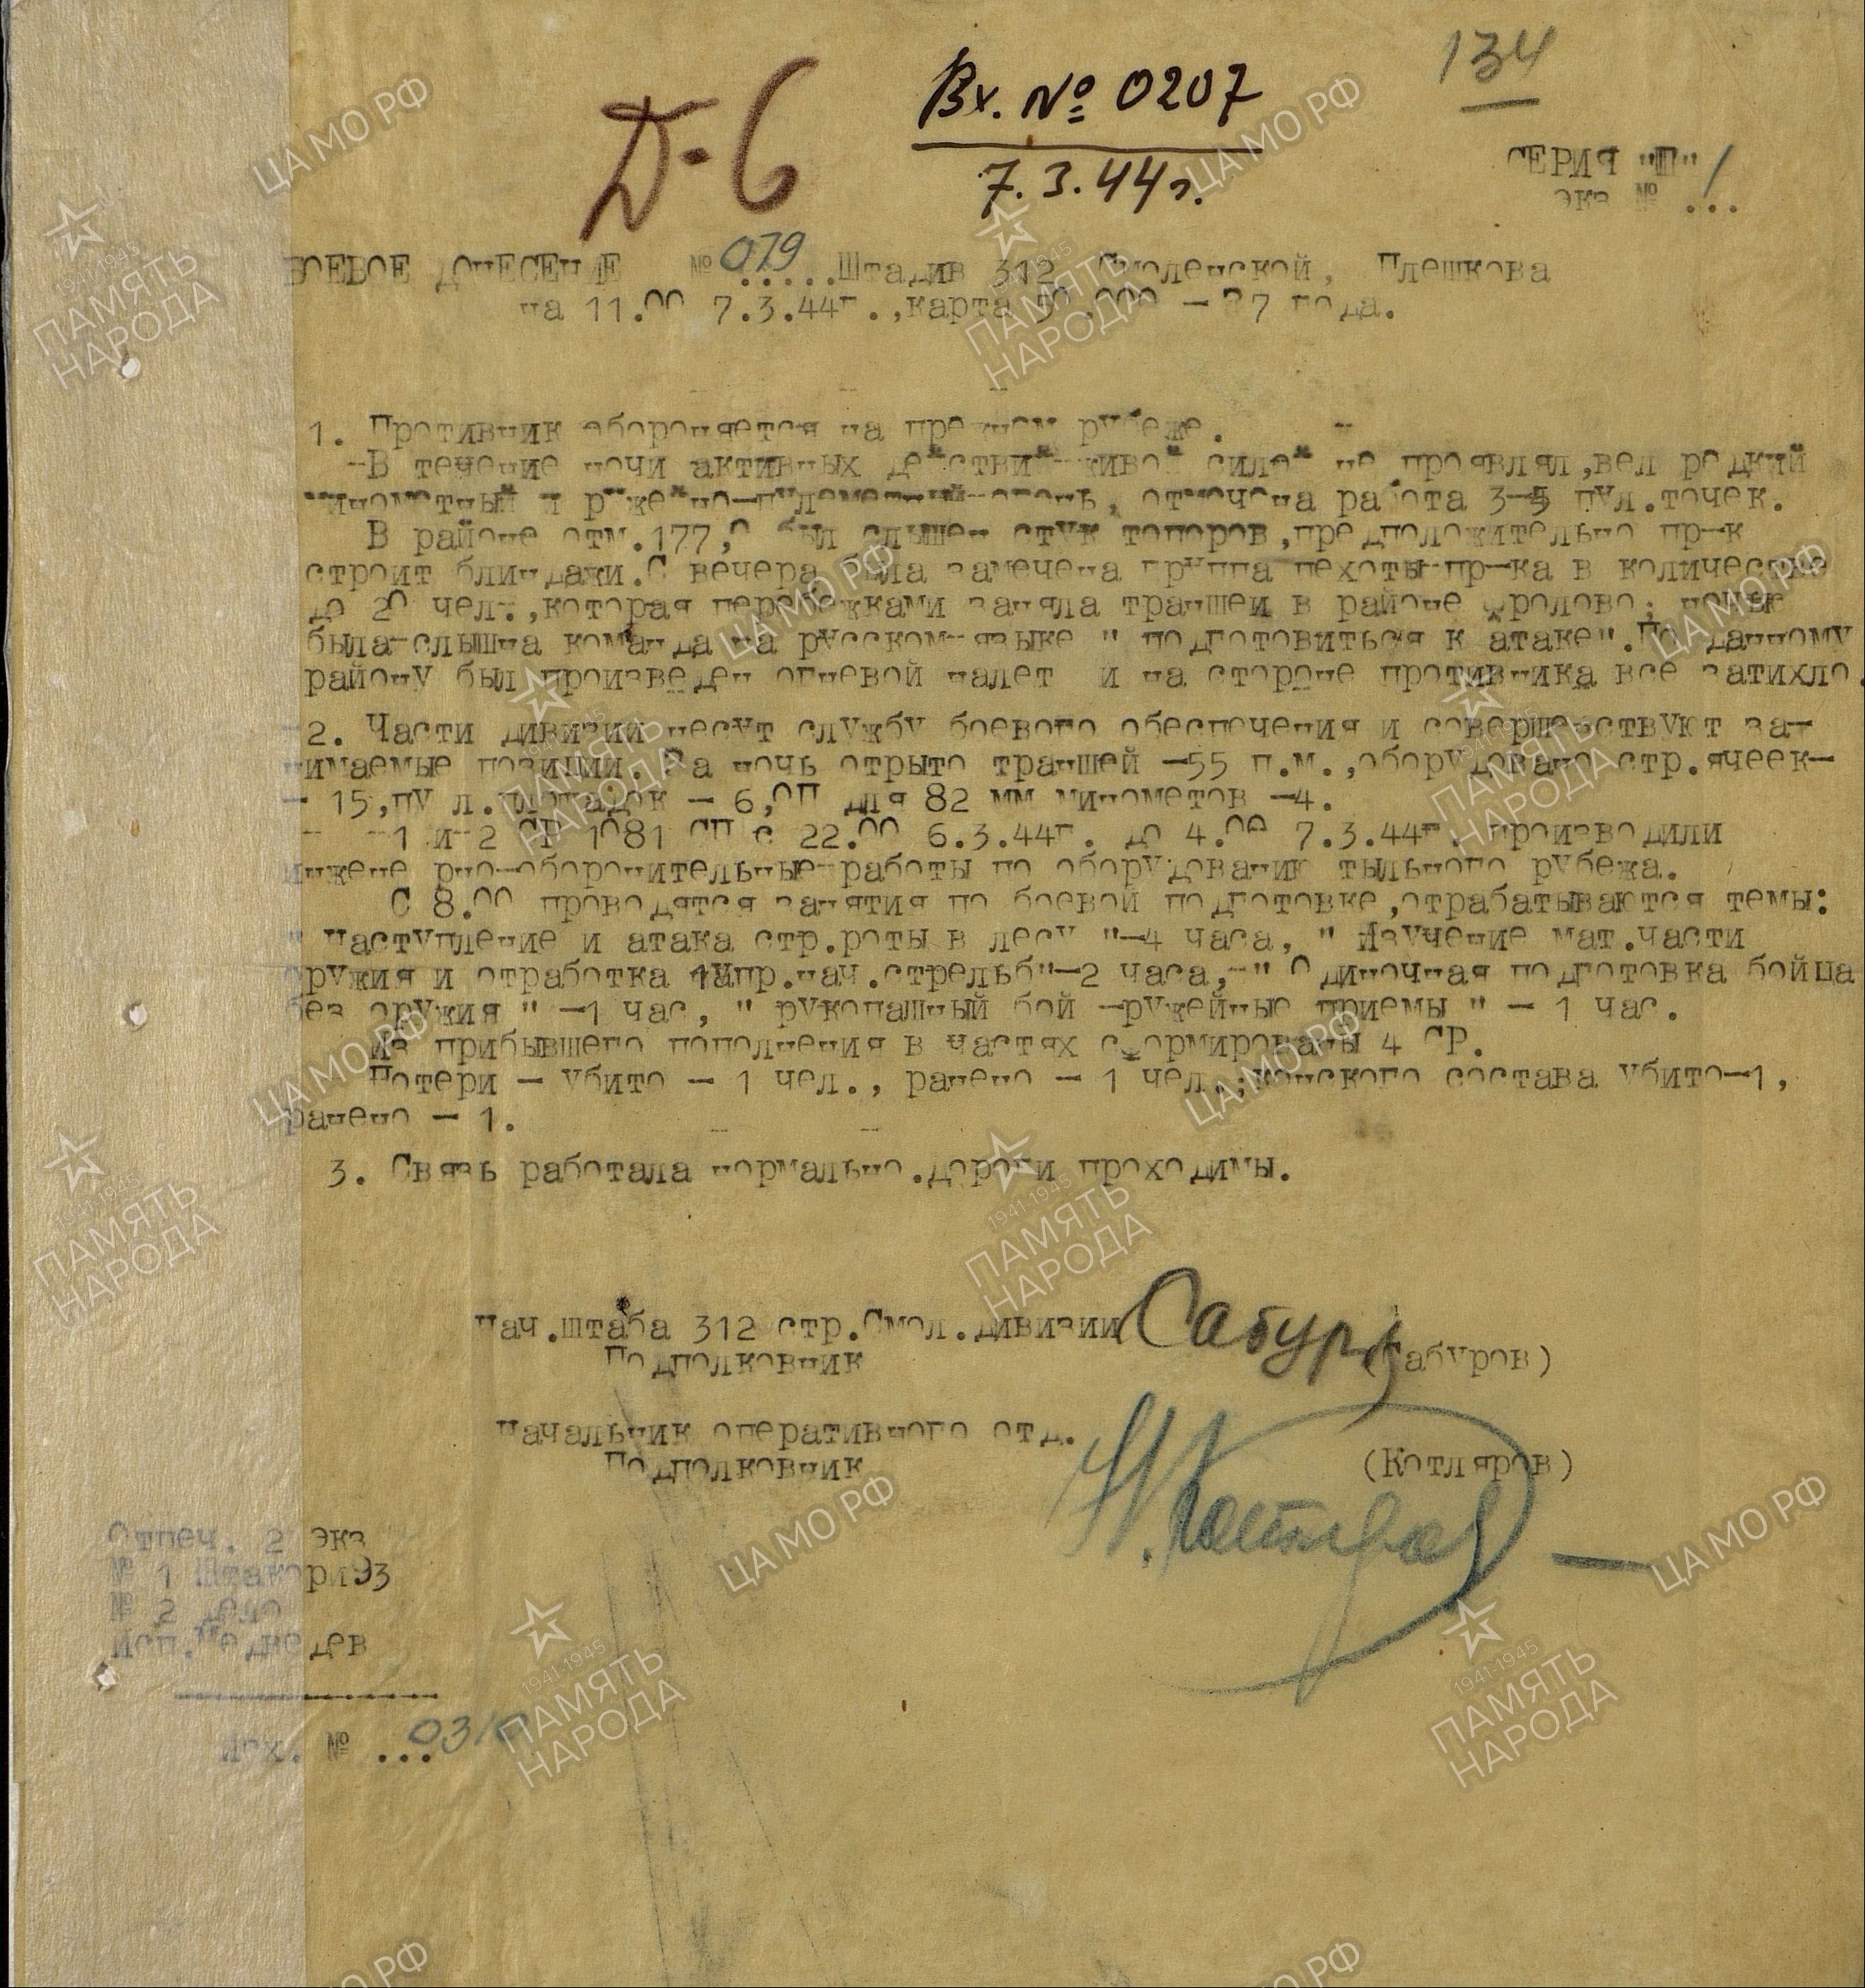 134
Д-6
Вх. № 0207
7.3.44г.
СЕРИЯ "П"
экз № ...1
БОЕВОЕ ДОНЕСЕНИЕ № 079 .....Штадив 312 Смоленской, Плешкова
на 11.00 7.3.44г.,карта 50.000 - 37 года.
1. Противник обороняется на прежнем рубеже.
-В течение ночи активных действий живой силой не проявлял,вел редкий
минометный и ружейно-пулеметный-огонь, отмечена работа 3-5 пул.точек.
В районе отм.177,0 был слышен стук топоров,предположительно пр-к
строит блиндажи.С вечера была замечена группа пехоты-пр-ка в количестве
до 20 чел.,которая перебежками заняла траншеи в районе Фролово; ночью
была-слышна команда на русском-языке " подготовиться к атаке".По данному
району был произведен огневой налет и на стороне противника все затихло.
2. Части дивизии несут службу боевого обеспечения и совершенствуют за-
нимаемые позиции. За ночь отрыто траншей -55 п.м.,оборудовано стр.ячеек-
- 15,пу л.площадок - 6,ОП для 82 мм минометов -4.
- -1 и-2 СР 1081 СП с 22.00 6.3.44г. до 4.00 7.3.44г. производили
инжене рно-оборонительные-работы по оборудованию тыльного рубежа.
С 8.00 проводятся занятия по боевой подготовке,отрабатываются темы:
" Наступление и атака стр.роты в лесу "-4 часа, " Изучение мат.части
оружия и отработка 1Упр.нач.стрельб"-2 часа,-" Одиночная подготовка бойца
без оружия " -1 час, " рукопашный бой -ружейные приемы " - 1 час.
Из прибывшего пополнения в частях сформированы 4 СР.
Потери - убито - 1 чел., ранено - 1 чел.;конского состава убито-1,
ранено - 1.
3. Связь работала нормально.дороги проходимы.
Нач.штаба 312 стр.Смол.дивизии Сабуров
Подполковник (Сабуров)
Начальник оперативного отд.
Подполковник (Котляров)
Н.Котляров
Отпеч. 2 экз
№ 1 Штакор 93
№ 2 дело
Исп.Медведев
Исх. № ...0310
ЦА МО РФ
1941-1945
ПАМЯТЬ
НАРОДА